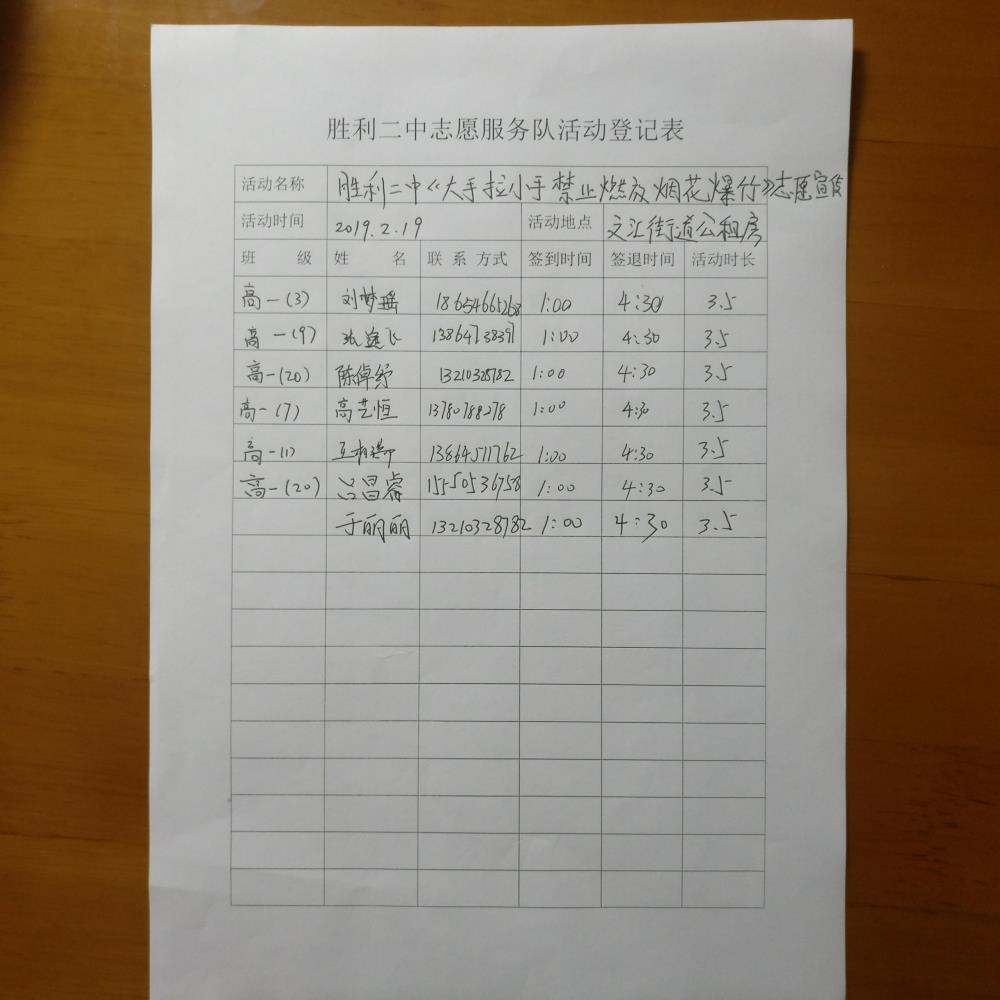 胜利二中志愿服务队活动登记表
活动名称 胜利二中《大手拉小手 禁止燃放烟花爆竹》志愿宣传
活动时间 2019.2.19 活动地点 文汇街道公租房
班 级 姓 名 联系方式 签到时间 签退时间 活动时长
高一(3) 刘梦瑶 18654665268 1:00 4:30 3.5
高一(9) 飞 13864738391 1:00 4:30 3.5
高一(20) 陈倬纾 13210328782 1:00 4:30 3.5
高一(7) 高艺恒 13780788278 1:00 4:30 3.5
高一(1) 13864511762 1:00 4:30 3.5
高一(20) 吕昌睿 15550536758 1:00 4:30 3.5
于丽丽 13210328782 1:00 4:30 3.5